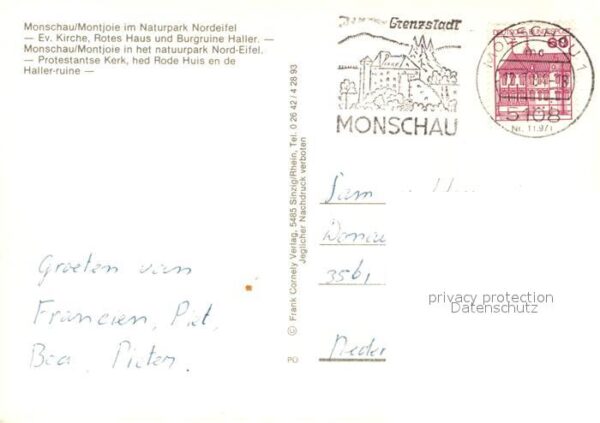 Monschau/Montjoie im Naturpark Nordeifel
— Ev. Kirche, Rotes Haus und Burgruine Haller. —
Monschau/Montjoie in het natuurpark Nord-Eifel.
— Protestantse Kerk, hed Rode Huis en de
Haller-ruine —
Groeten van
Francien, Piet,
Bea, Pieter.
© Frank Cornely Verlag, 5485 Sinzig/Rhein, Tel. 0 26 42 / 4 28 93
Jeglicher Nachdruck verboten
PÜ
Grenzstadt
MONSCHAU
MONSCHAU 1
5108
60
Nr. 11.971
Donau
356
Neder
privacy protection
Datenschutz